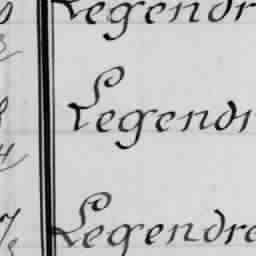 Legendr
Legendr
Legendre